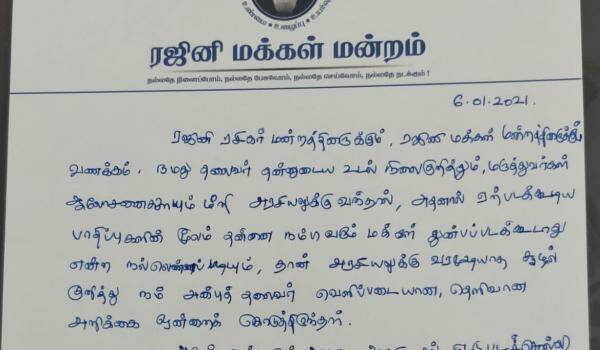 உண்மை • உழைப்பு • உயர்வு
ரஜினி மக்கள் மன்றம்
நல்லதே நினைப்போம், நல்லதே பேசுவோம், நல்லதே செய்வோம், நல்லதே நடக்கும் !
6.01.2021.
ரஜினி ரசிகர் மன்றத்தினருக்கும், ரஜினி மக்கள் மன்றத்தினருக்கும்
வணக்கம். நமது தலைவர் தன்னுடைய உடல் நிலைகுறித்தும், மருத்துவர்கள்
ஆலோசனையையும் மீறி அரசியலுக்கு வந்தால், அதனால் ஏற்படக்கூடிய
பாதிப்புகளின் மூலம் தன்னை நம்பி வரும் மக்கள் துன்பப்படக்கூடாது
என்ற நல்லெண்ணப்படியும், தான் அரசியலுக்கு வரஇயலாத சூழல்
குறித்து நம் அன்புத் தலைவர் வெளிப்படையான, தெளிவான
அறிக்கை ஒன்றைக் கொடுத்திருந்தார்.